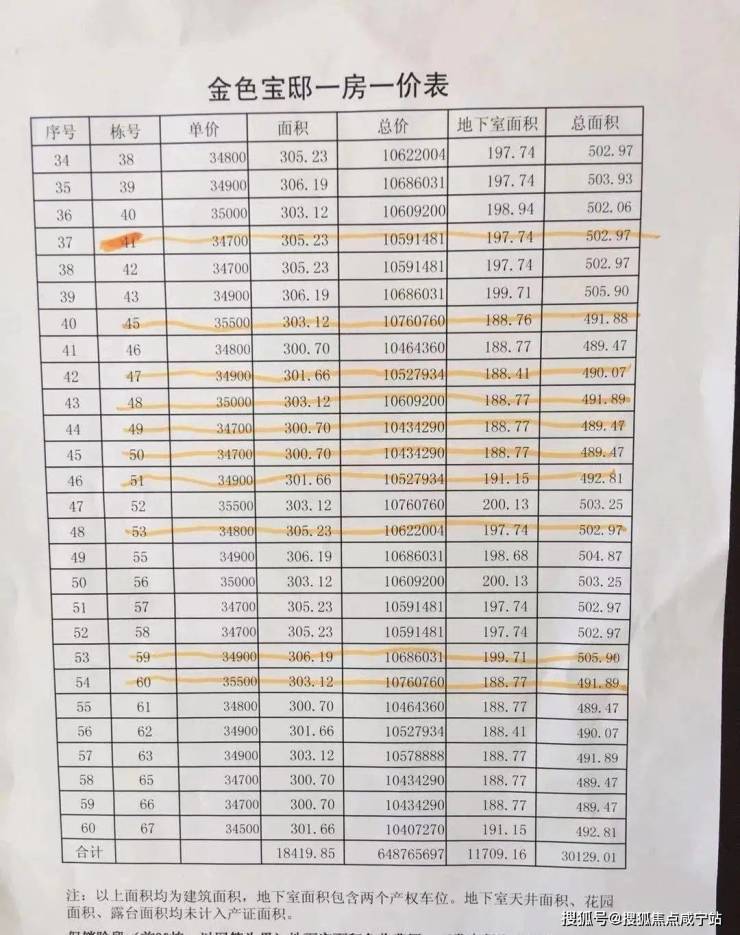 金色宝邸一房一价表
序号 栋号 单价 面积 总价 地下室面积 总面积
34 38 34800 305.23 10622004 197.74 502.97
35 39 34900 306.19 10686031 197.74 503.93
36 40 35000 303.12 10609200 198.94 502.06
37 41 34700 305.23 10591481 197.74 502.97
38 42 34700 305.23 10591481 197.74 502.97
39 43 34900 306.19 10686031 199.71 505.90
40 45 35500 303.12 10760760 188.76 491.88
41 46 34800 300.70 10464360 188.77 489.47
42 47 34900 301.66 10527934 188.41 490.07
43 48 35000 303.12 10609200 188.77 491.89
44 49 34700 300.70 10434290 188.77 489.47
45 50 34700 300.70 10434290 188.77 489.47
46 51 34900 301.66 10527934 191.15 492.81
47 52 35500 303.12 10760760 200.13 503.25
48 53 34800 305.23 10622004 197.74 502.97
49 55 34900 306.19 10686031 198.68 504.87
50 56 35000 303.12 10609200 200.13 503.25
51 57 34700 305.23 10591481 197.74 502.97
52 58 34700 305.23 10591481 197.74 502.97
53 59 34900 306.19 10686031 199.71 505.90
54 60 35500 303.12 10760760 188.77 491.89
55 61 34800 300.70 10464360 188.77 489.47
56 62 34900 301.66 10527934 188.41 490.07
57 63 34900 303.12 10578888 188.77 491.89
58 65 34700 300.70 10434290 188.77 489.47
59 66 34700 300.70 10434290 188.77 489.47
60 67 34500 301.66 10407270 191.15 492.81
合计 18419.85 648765697 11709.16 30129.01
注：以上面积均为建筑面积，地下室面积包含两个产权车位。地下室天井面积、花园
面积、露台面积均未计入产证面积。
搜狐号@搜狐焦点咸宁站